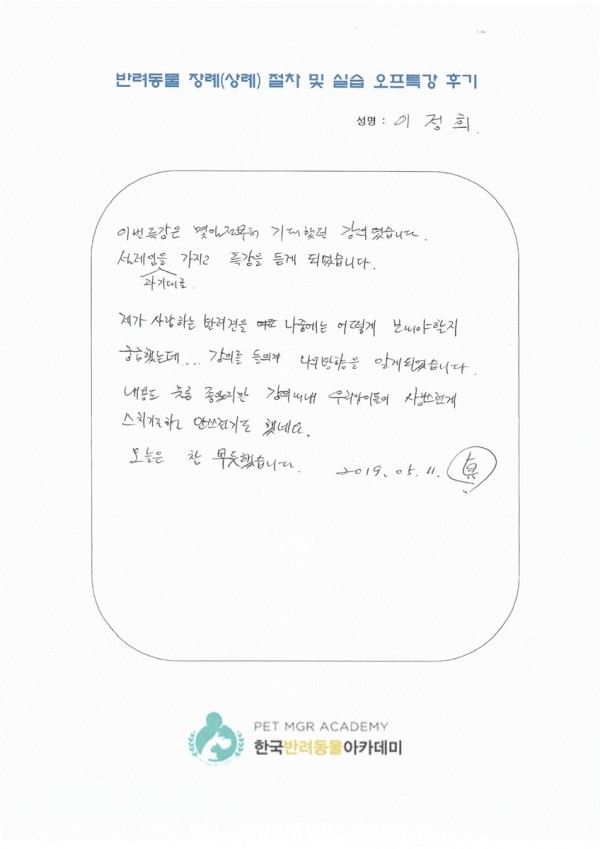 반려동물 장례(상례) 절차 및 실습 오프특강 후기
성명 : 이 정 희.
이번 특강은 몇일전부터 기대했던 강의였습니다.
설레임을 가지고 특강을 듣게 되었습니다.
과 기대로.
제가 사랑하는 반려견을 나중에는 어떻게 보내야할지
궁금했는데... 강의를 들으며 방향을 알게되었습니다.
내용도 너무 좋았지만 강의내내 우리아이들이
스치기도하고 안쓰럽기도 했네요.
오늘은 참 뿌듯했습니다. 2019. 05. 11. 貞
PET MGR ACADEMY
한국반려동물아카데미